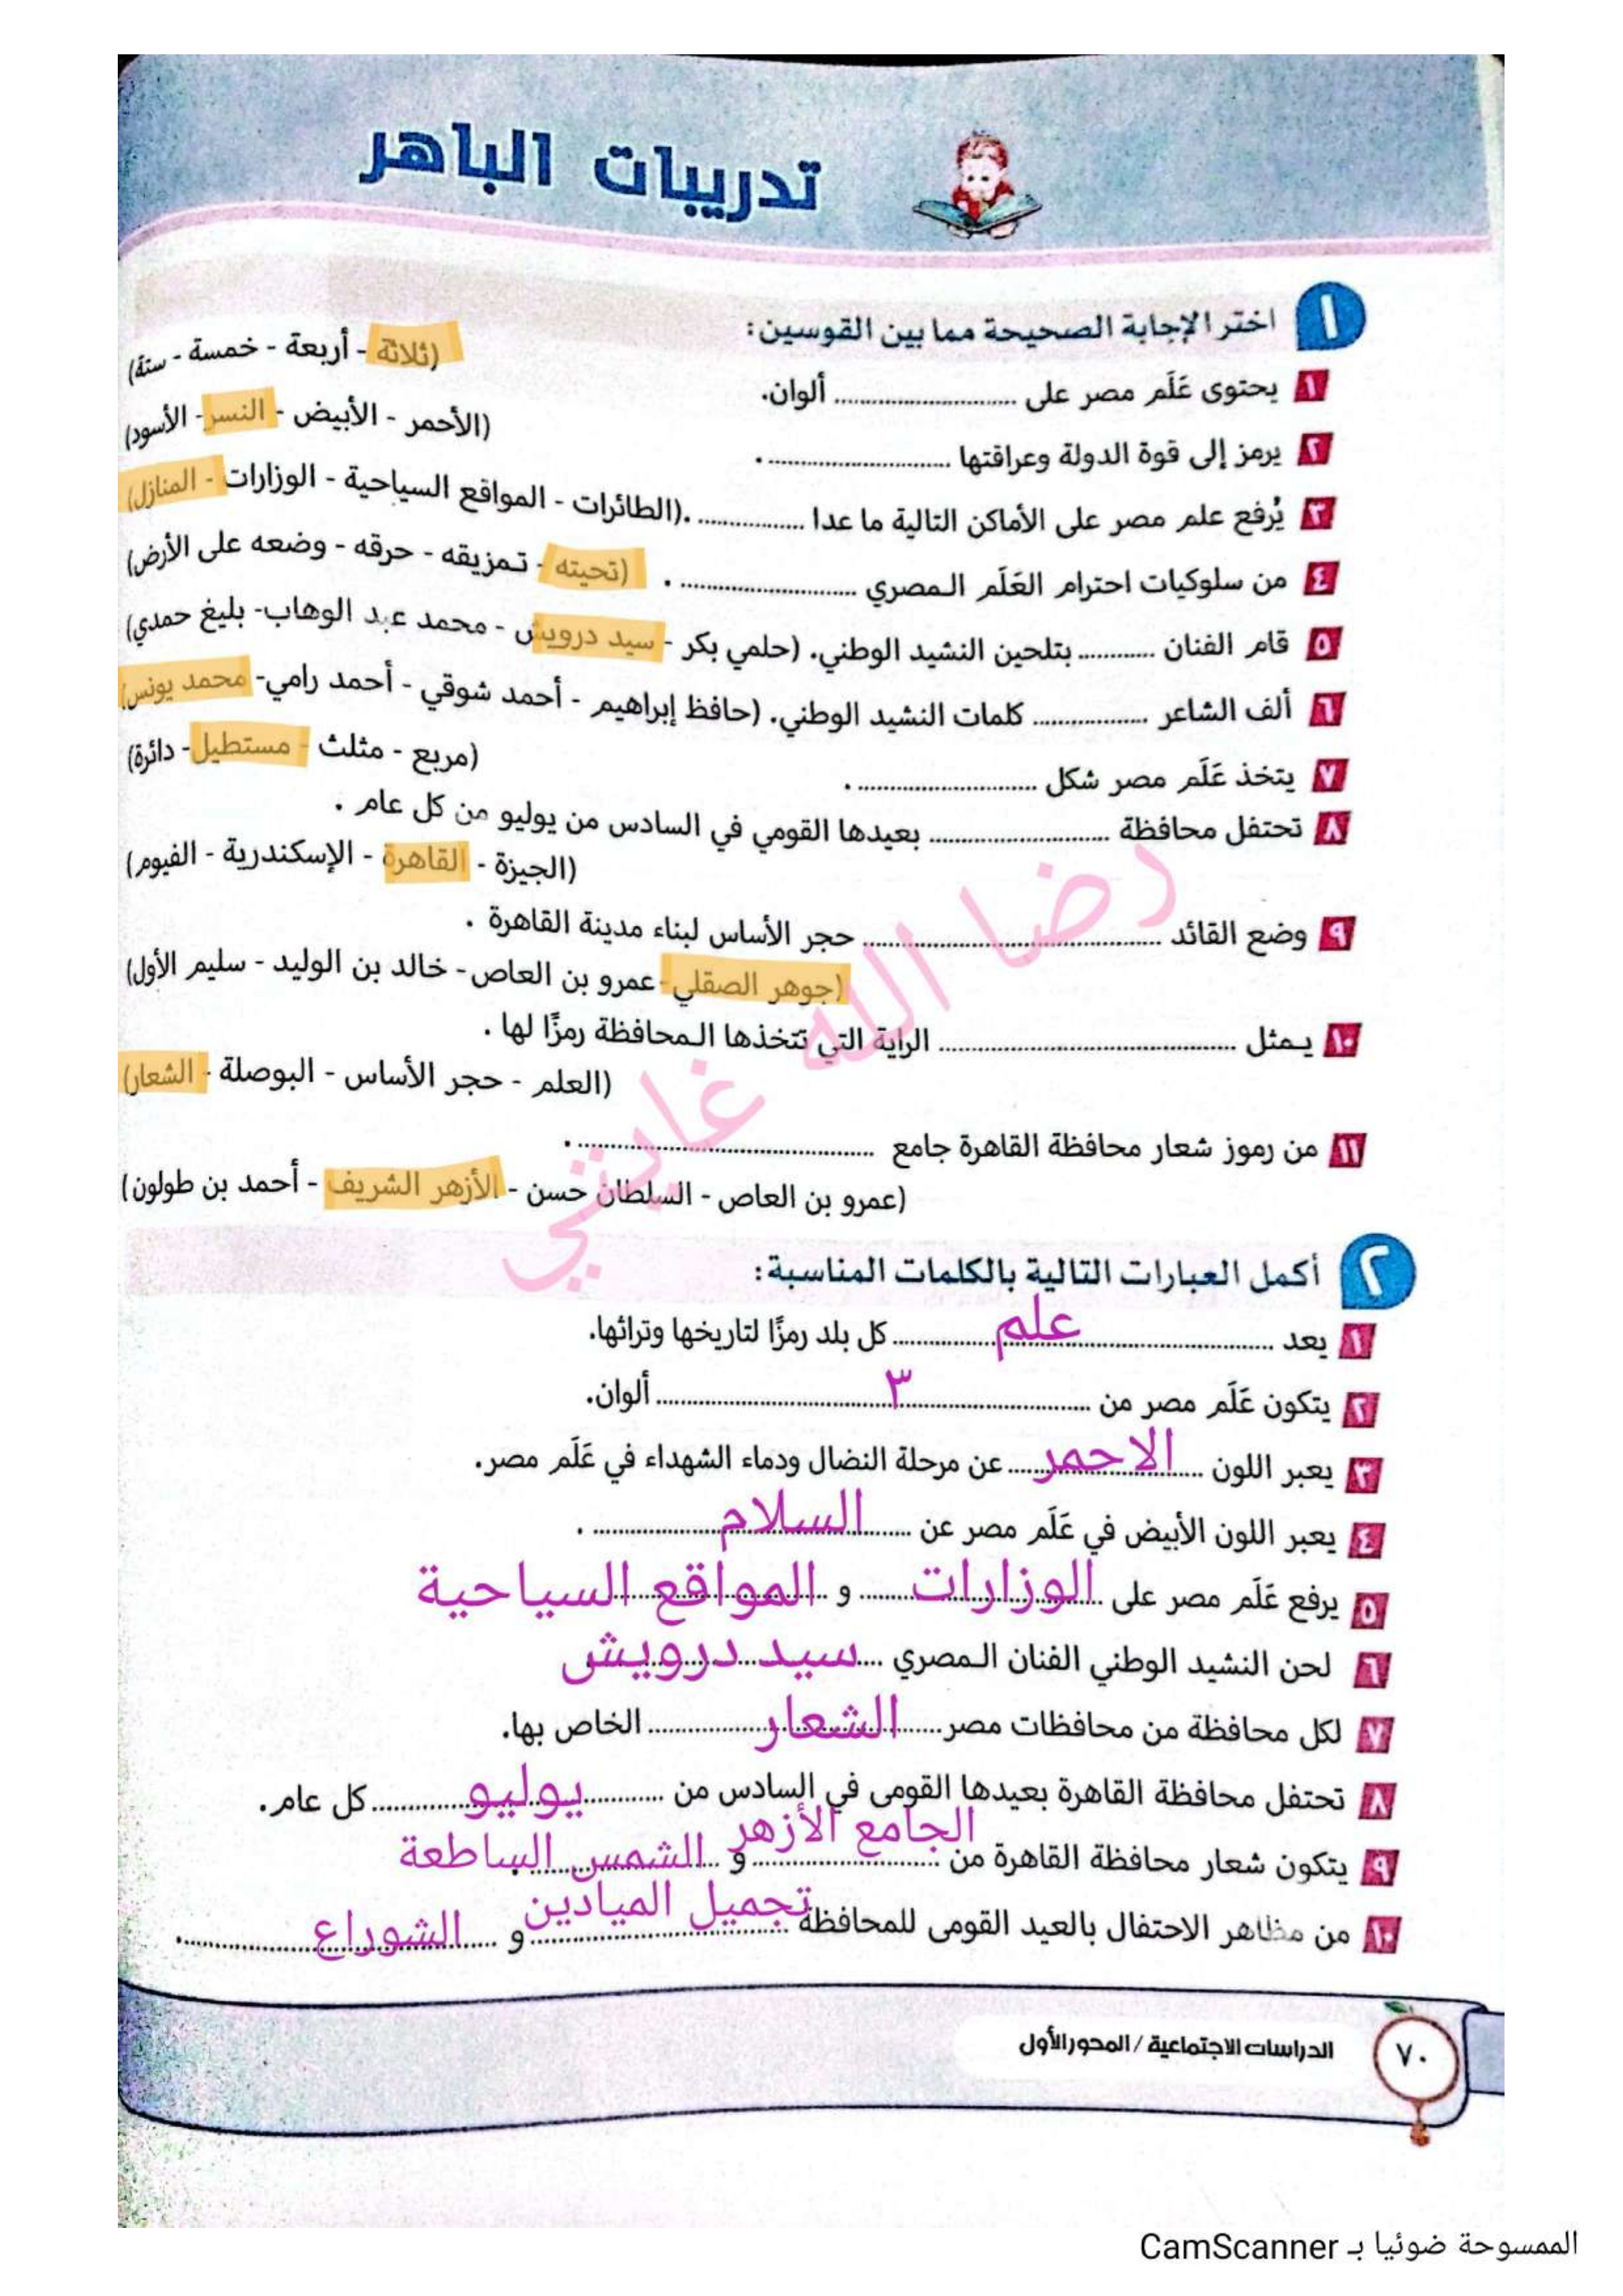 تدريبات الباهر
١ اختر الإجابة الصحيحة مما بين القوسين:
١ يحتوى عَلَم مصر على .................. ألوان. (ثلاثة - أربعة - خمسة - ستة)
٢ يرمز إلى قوة الدولة وعراقتها .................. . (الأحمر - الأبيض - النسر - الأسود)
٣ يُرفع علم مصر على الأماكن التالية ما عدا .................. .(الطائرات - المواقع السياحية - الوزارات - المنازل)
٤ من سلوكيات احترام العَلَم المصري .................. . (تحيته - تمزيقه - حرقه - وضعه على الأرض)
٥ قام الفنان ............ بتلحين النشيد الوطني. (حلمي بكر - سيد درويش - محمد عبد الوهاب- بليغ حمدي)
٦ ألف الشاعر .................. كلمات النشيد الوطني. (حافظ إبراهيم - أحمد شوقي - أحمد رامي- محمد يونس)
٧ يتخذ عَلَم مصر شكل .................. . (مربع - مثلث - مستطيل - دائرة)
٨ تحتفل محافظة .................. بعيدها القومي في السادس من يوليو من كل عام .
(الجيزة - القاهرة - الإسكندرية - الفيوم)
٩ وضع القائد .................. حجر الأساس لبناء مدينة القاهرة .
(جوهر الصقلي - عمرو بن العاص- خالد بن الوليد - سليم الأول)
١٠ يمثل .................. الراية التي تتخذها المحافظة رمزًا لها .
(العلم - حجر الأساس - البوصلة - الشعار)
١١ من رموز شعار محافظة القاهرة جامع .................. .
(عمرو بن العاص - السلطان حسن - الأزهر الشريف - أحمد بن طولون)
رضا الله غايتي
٢ أكمل العبارات التالية بالكلمات المناسبة:
١ يعد ...... علم ...... كل بلد رمزًا لتاريخها وتراثها.
٢ يتكون عَلَم مصر من ...... ٣ ...... ألوان.
٣ يعبر اللون ...... الاحمر ...... عن مرحلة النضال ودماء الشهداء في عَلَم مصر.
٤ يعبر اللون الأبيض في عَلَم مصر عن ...... السلام ...... .
٥ يرفع عَلَم مصر على ...... الوزارات ...... و ...... المواقع السياحية
٦ لحن النشيد الوطني الفنان المصري ...... سيد درويش
٧ لكل محافظة من محافظات مصر ...... الشعار ...... الخاص بها.
٨ تحتفل محافظة القاهرة بعيدها القومى في السادس من ...... يوليو ...... كل عام.
٩ يتكون شعار محافظة القاهرة من ...... الجامع الأزهر ...... و ...... الشمس الساطعة
١٠ من مظاهر الاحتفال بالعيد القومى للمحافظة ...... تجميل الميادين ...... و ...... الشوراع ...... .
الدراسات الاجتماعية / المحور الأول
٧٠
الممسوحة ضوئيا بـ CamScanner